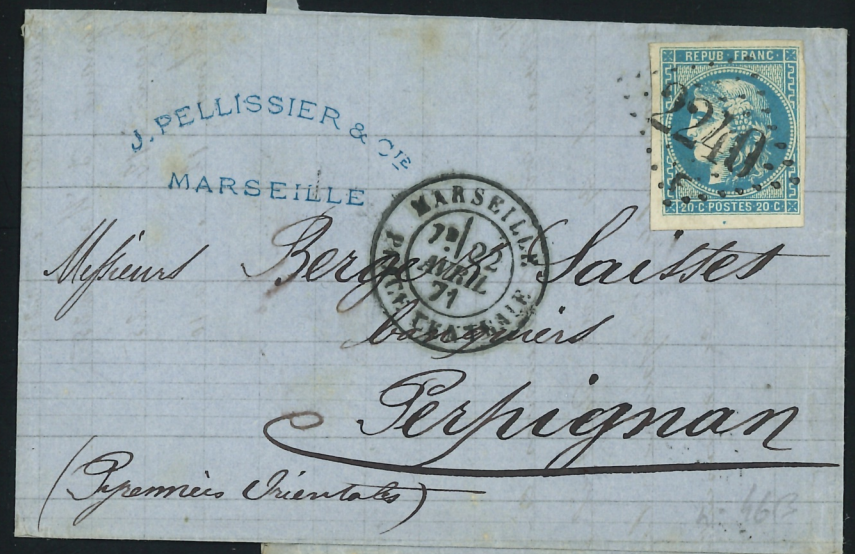 J. PELLISSIER & CIE
MARSEILLE
REPUB. FRANC.
2240
20·C·POSTES·20·C·
MARSEILLE
22
AVRIL
71
CENTRALE
Messieurs Berge & Saisset
banquiers
Perpignan
(Pyrennées Orientales)
46B